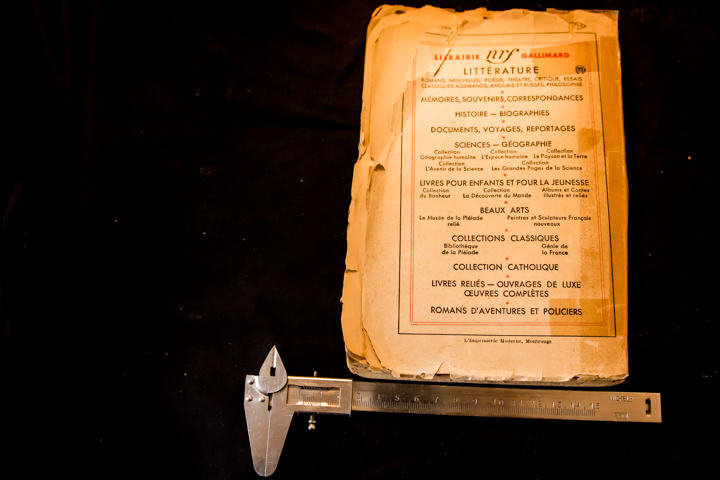 LIBRAIRIE nrf GALLIMARD
LITTÉRATURE
ROMANS, NOUVELLES, POÉSIE, THÉATRE, CRITIQUE, ESSAIS
CLASSIQUES ALLEMANDS, ANGLAIS ET RUSSES, PHILOSOPHIE
MÉMOIRES, SOUVENIRS, CORRESPONDANCES
HISTOIRE — BIOGRAPHIES
DOCUMENTS, VOYAGES, REPORTAGES
SCIENCES — GÉOGRAPHIE
Collection Collection Collection
Géographie humaine L'Espèce humaine Le Paysan et la Terre
Collection Collection
L'Avenir de la Science Les Grandes Pages de la Science
LIVRES POUR ENFANTS ET POUR LA JEUNESSE
Collection Collection Albums et Contes
du Bonheur La Découverte du Monde illustrés et reliés
BEAUX ARTS
Le Musée de la Pléiade Peintres et Sculpteurs Français
relié nouveaux
COLLECTIONS CLASSIQUES
Bibliothèque Génie de
de la Pléiade la France
COLLECTION CATHOLIQUE
LIVRES RELIÉS — OUVRAGES DE LUXE
ŒUVRES COMPLÈTES
ROMANS D'AVENTURES ET POLICIERS
L'Imprimerie Moderne, Montrouge
5 6 7 8 9 10 11 12 13 14 15